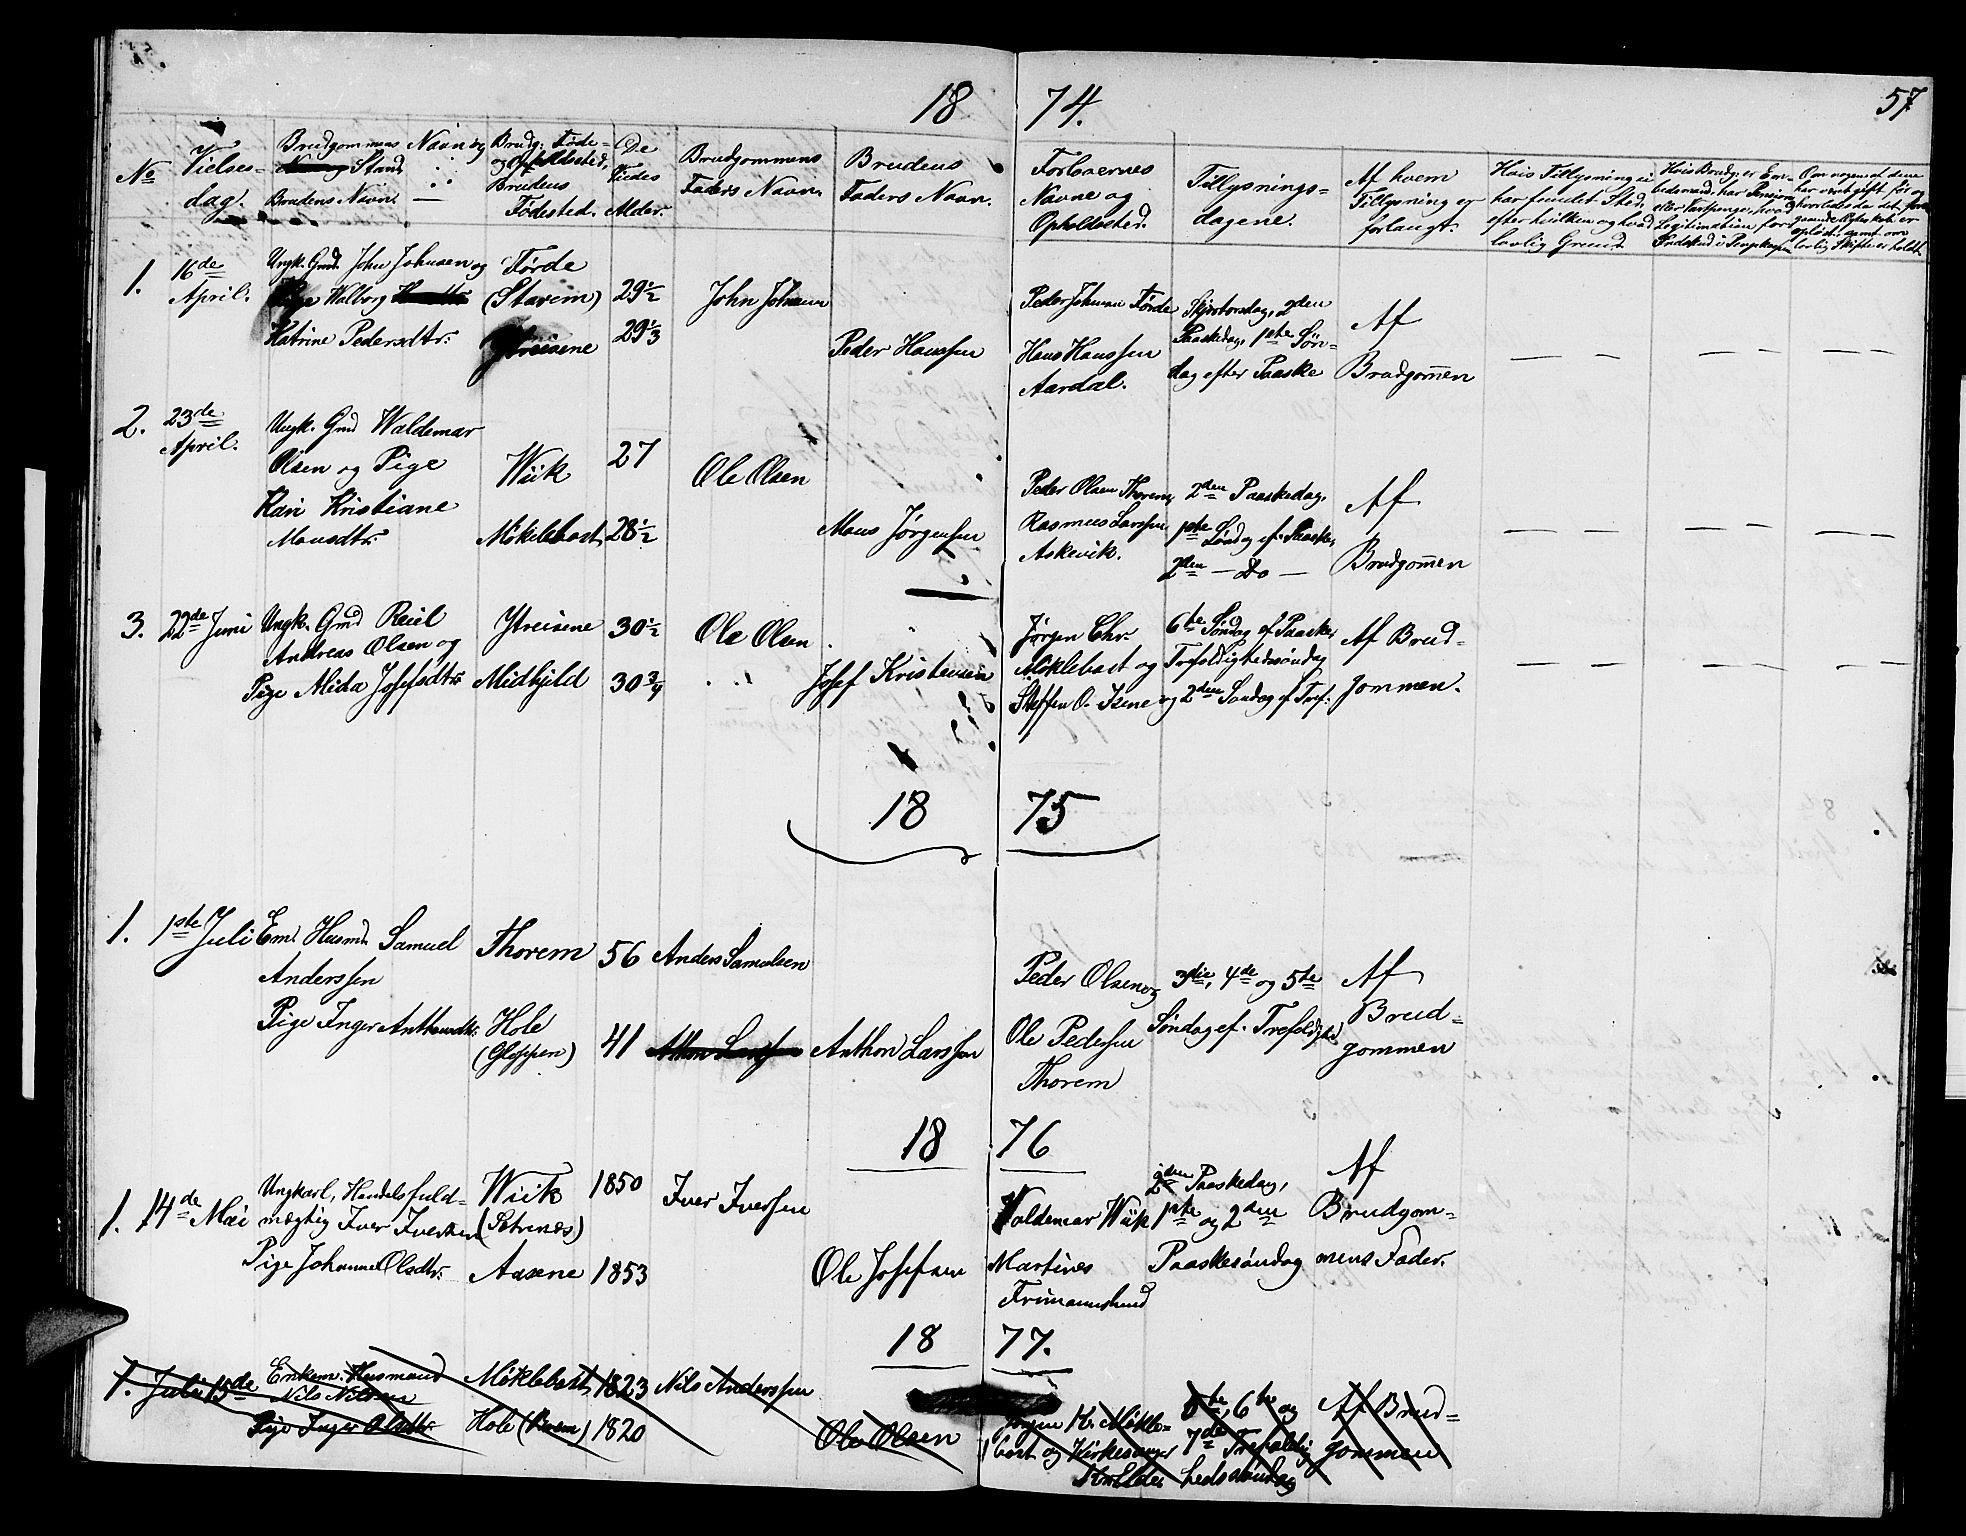 57
18 74.
No
Vielses-
dag.
Brudgommens Navn og
Stand
Brudens Navn.
Brudg. Føde-
og Opholdssted,
Brudens
Fødested.
De
Viedes
Alder.
Brudgommens
Faders Navn.
Brudens
Faders Navn.
Forlovernes
Navne og
Opholdssted.
Tillysnings-
dagene.
Af hvem
Tillysning er
forlangt.
Hvis Tillysning ei
har fundet Sted,
efter hvilken og hvad
lovlig Grund.
Hvis Brudg. er Em-
bedsmand, har Pension
Legitimation for
1. 16de
April.
Ungk. Gmd. John Johnsen og
Pige Walborg
Katrine Pedersdtr.
Førde
(Stavem)
Ytreisene
29 1/2
29 1/3
John Johnsen
Peder Hanssen
Peder Johnsen Førde
Hans Hanssen
Aardal.
Skjærtorsdag, 2den
Paaskedag, 1ste Søn-
dag efter Paaske
Af
Brudgom̅en
2. 23de
April.
Ungk. Gmd Waldemar
Olsen og Pige
Kari Kristiane
Monsdtr.
Wiik
Møklebost
27
28 1/2
Ole Olsen
Mons Jørgensen
Peder Olsen Thorem,
Rasmus Larssen
Askevik.
2den Paaskedag,
1ste Søndag ef. Paaske,
2den — do —
Af
Brudgom̅en
3. 22de Juni
Ungk. Gmd Reiel
Andreas Olsen og
Pige Alida Josefsdtr.
Ytreisene
Midhjeld
30 1/2
30 3/4
Ole Olsen
Josef Kristensen
Jørgen Chr.
Møklebost og
Steffen O. Isene
6te Søndag ef Paaske,
Trefoldighedssøndag
og 2den Søndag ef Tref.
Af Brud-
gommen.
18 75
1. 1ste Juli
Em. Husmd. Samuel
Anderssen
Pige Inger Anthonsdtr.
Thorem
Hole
(Gloppen)
56
41
Anders Samuelsen
Anthon Larssen
Peder Olsen og
Ole Pedersen
Thorem
3die, 4de og 5te
Søndag ef. Trefoldighed
Af
Brud-
gommen
18 76
1. 14de Mai
Ungkarl, Handelsfuld-
mægtig Iver Iversen
Pige Johanne Olsdtr.
Wiik
(Setrenæs)
Aasene
1850
1853
Iver Iversen
Ole Josefsen
Valdemar Wiik
Martines
Frimannslund
2den Paaskedag,
1ste og 2den
Paaskesøndag
Af
Brudgom-
mens Fader.
18 77.
1. Juli 15de
Enkem. Husmand
Nils Nilsen
Pige Inger Olsdtr.
Møklebost
Hole
1823
1820
Nils Anderssen
Ole Olsen
Jørgen K. Møkle-
bost og Kirkesanger
6te og
7de Trefoldig
hedssøndag
Af Brud-
gommen